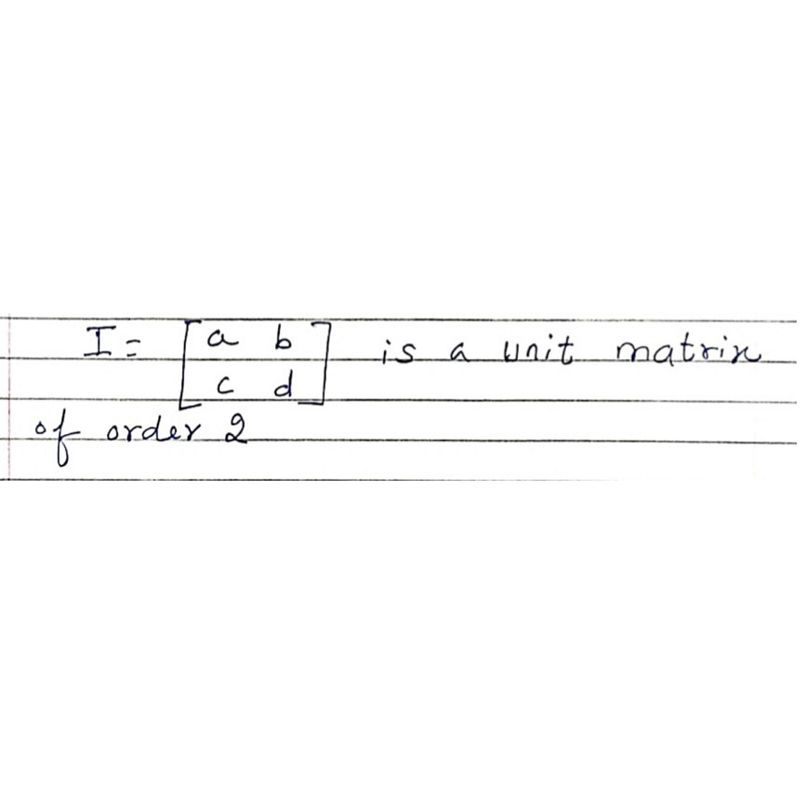 I = [a b
c d] is a unit matrix
of order 2